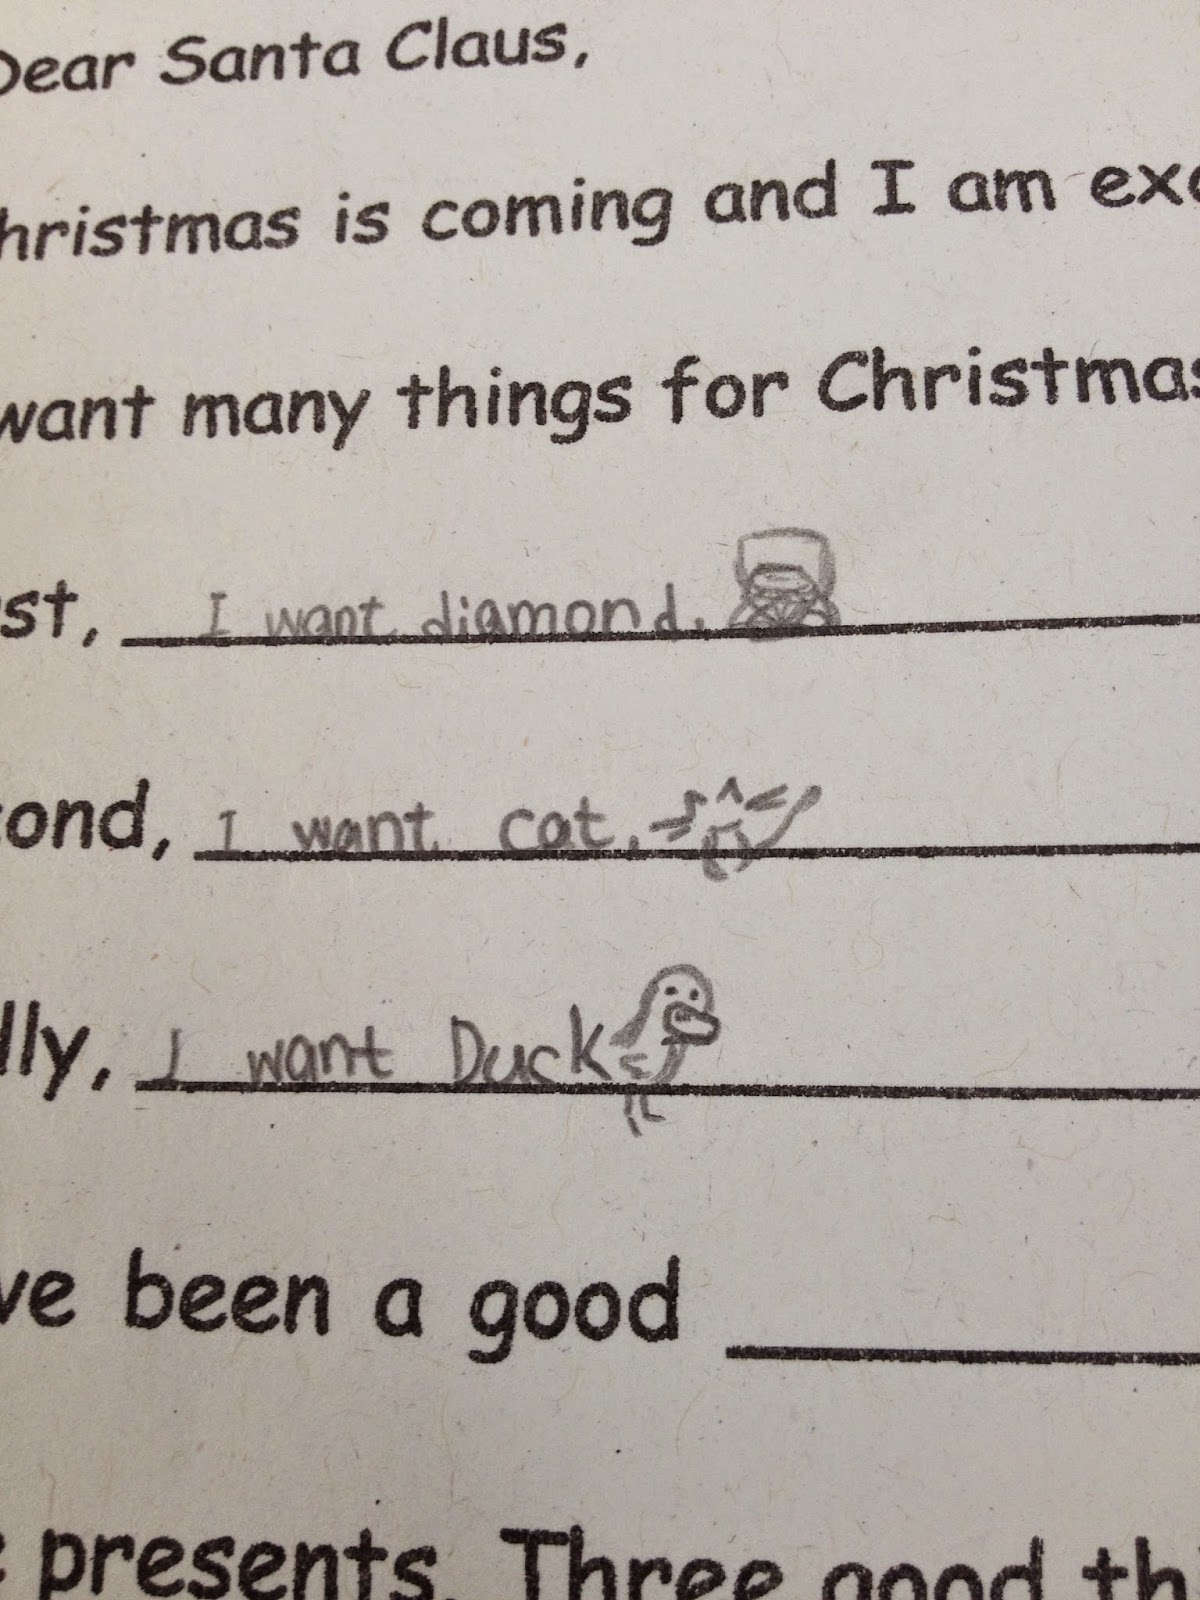 Dear Santa Claus,
hristmas is coming and I am exc
want many things for Christmas
st, I want diamond.
ond, I want cat.
lly, I want Duck
ve been a good
presents. Three good thi